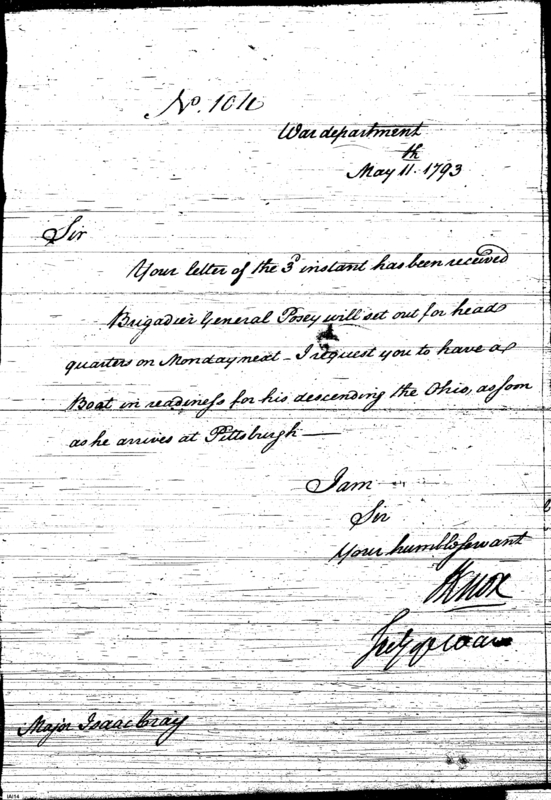 No. 104
War department
May 11th. 1793
Sir
Your letter of the 3d instant has been received
Brigadier General Posey will set out for head
quarters on Monday next – I request you to have a
Boat in readiness for his descending the Ohio, as soon
as he arrives at Pittsburgh —
I am
Sir
Your humble Servant
HKnox
Secy of war
Major Isaac Craig